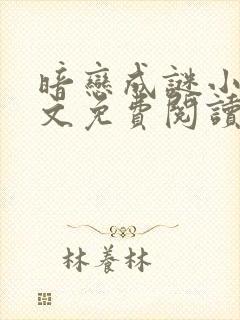 暗戀成謎小
文免費閱讀
林養林